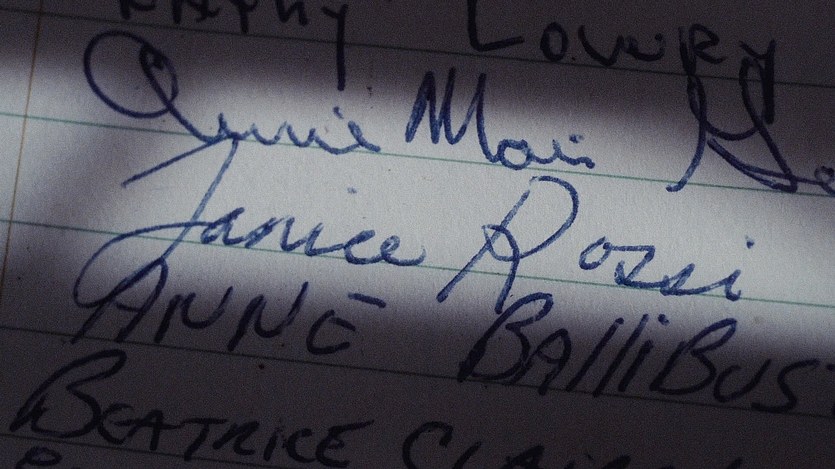 Lowery
Annie Mai
Janice Rossi
ANNE BAlliBUS
BEATRICE